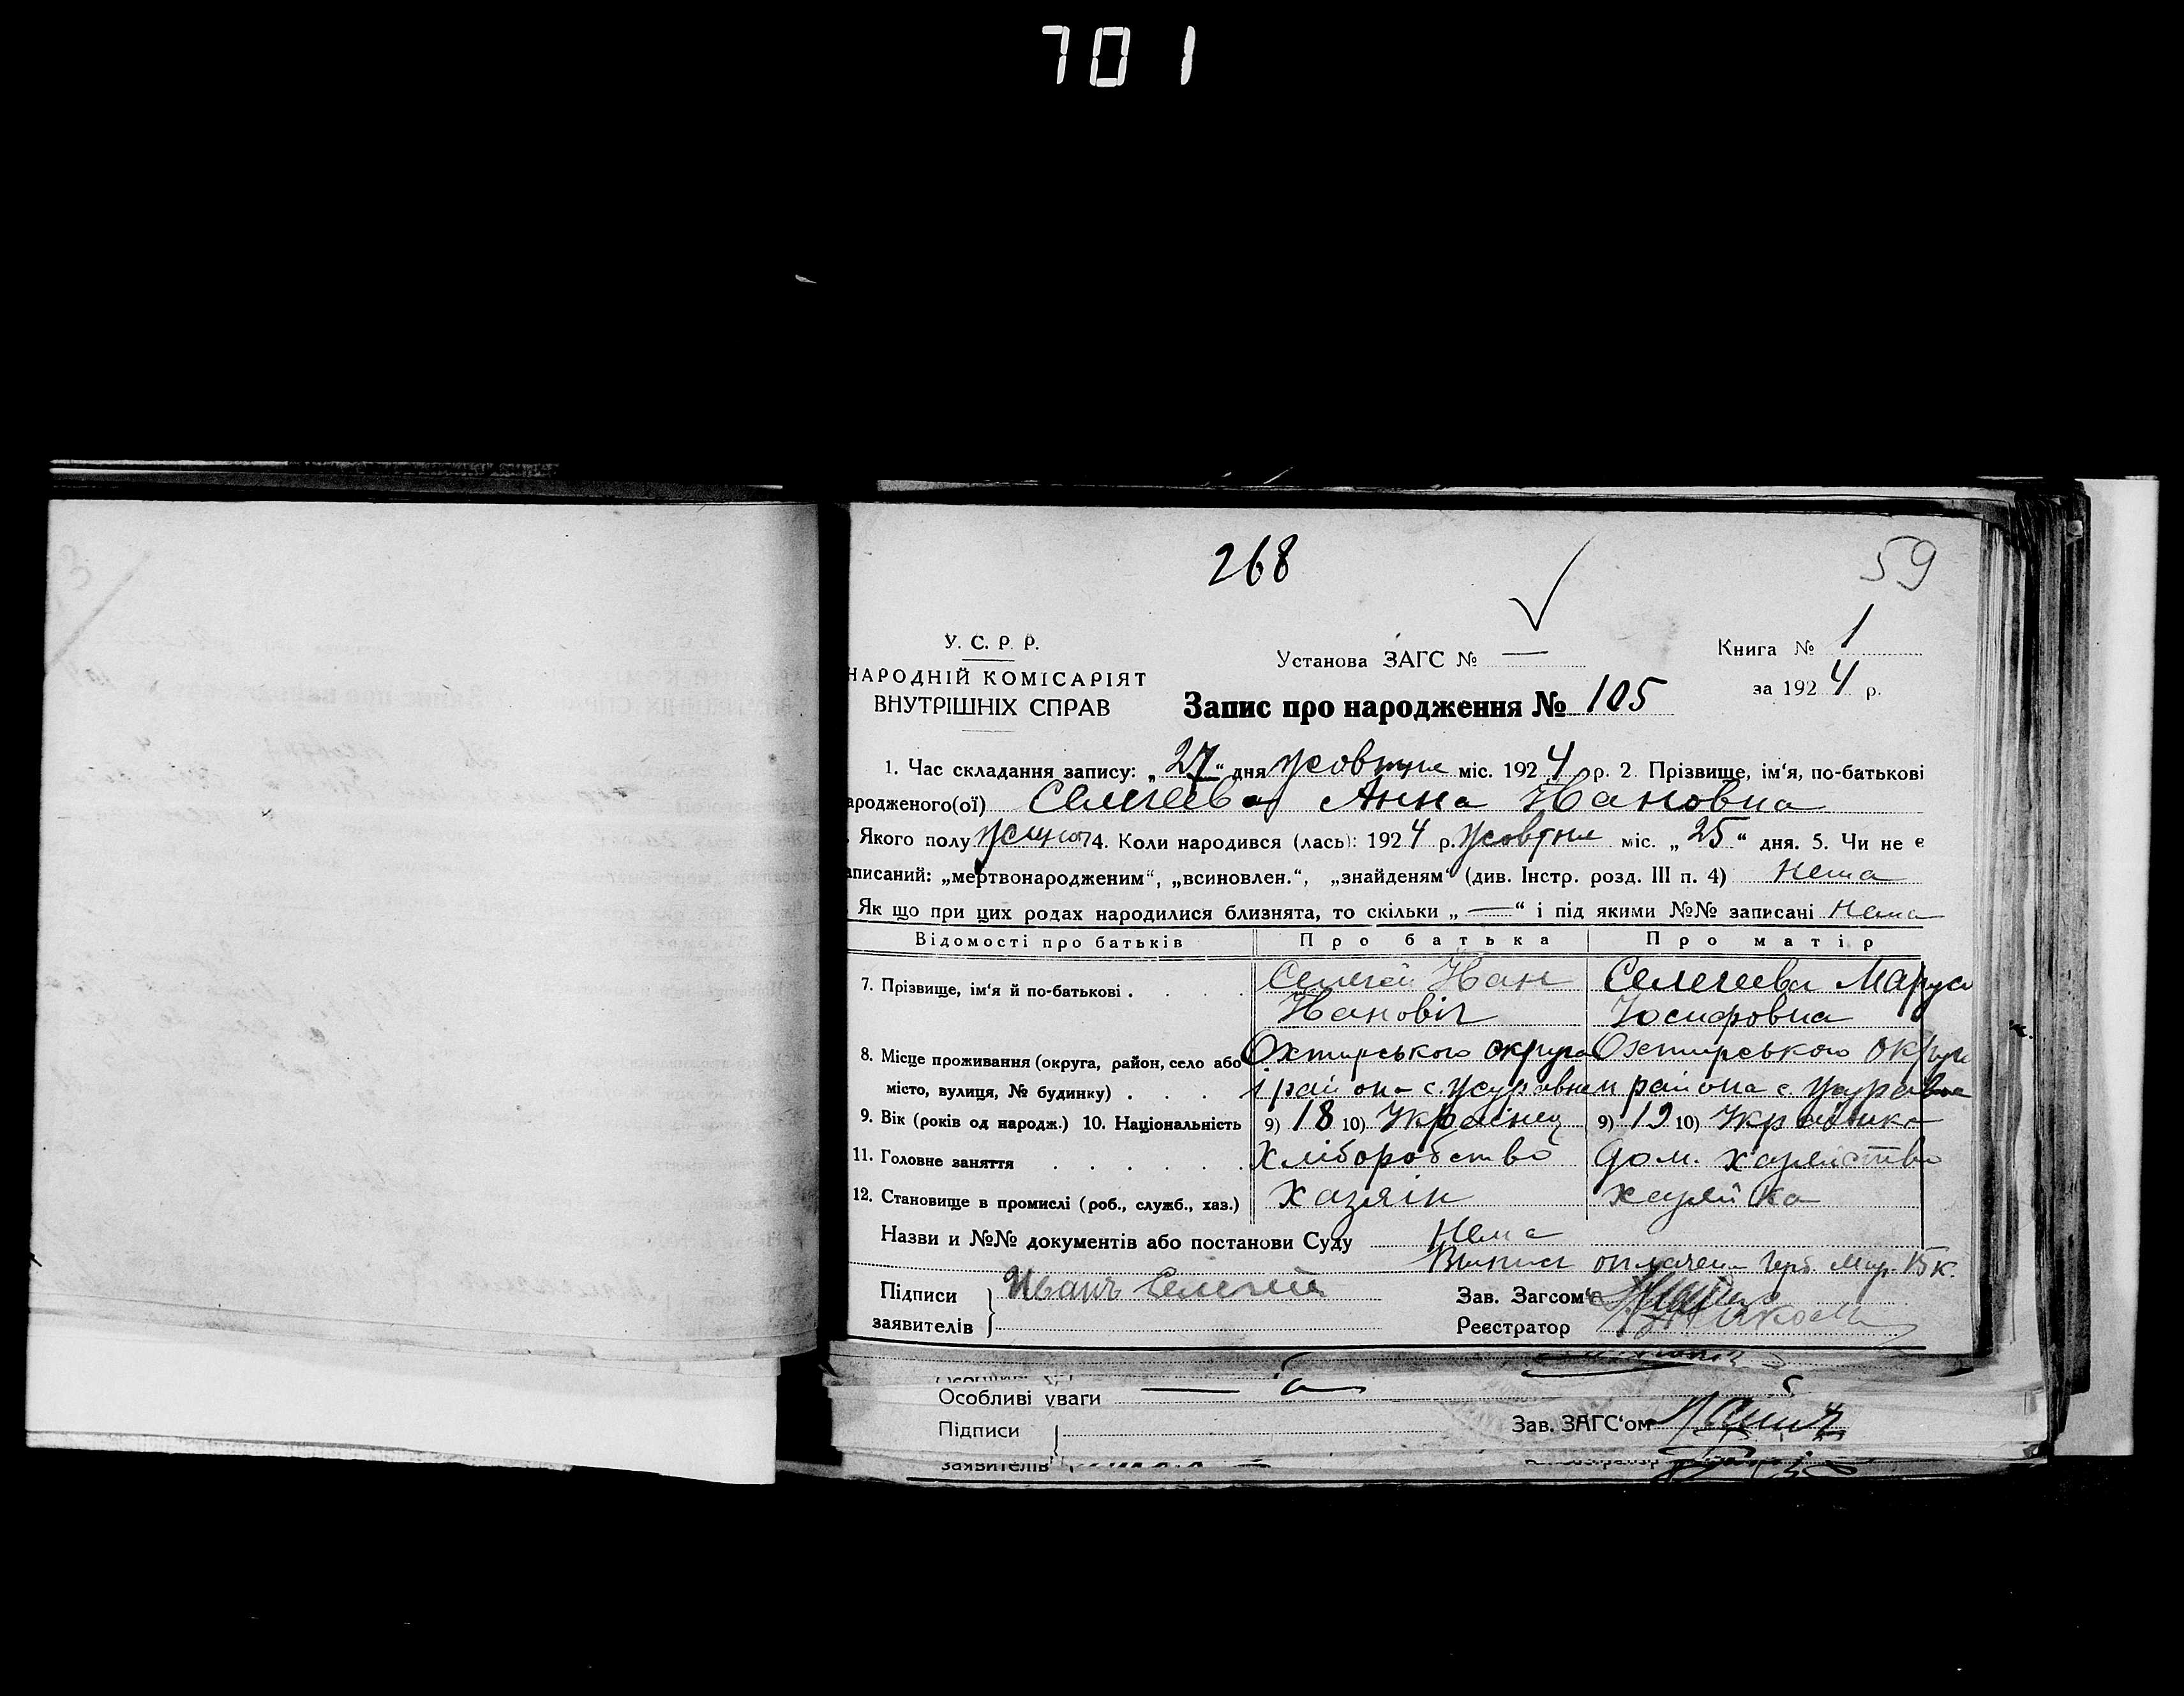 701
268
59
У. С. Р. Р.
НАРОДНІЙ КОМІСАРІЯТ
ВНУТРІШНІХ СПРАВ
Установа ЗАГС № —
Книга № 1
за 1924 р.
Запис про народження № 105
1. Час складання запису: „27“ дня жовтня міс. 1924 р. 2. Прізвище, ім‘я, по-батькові
ародженого(ої) Селегеева Анна Івановна
Якого полу жіноч 4. Коли народився (лась): 1924 р. жовтня міс. „25“ дня. 5. Чи не є
аписаний: „мертвонародженим“, „всиновлен.“, „знайденям“ (див. Інстр. розд. III п. 4) Нема
Як що при цих родах народилися близнята, то скільки „—“ і під якими №№ записані Нема
Відомості про батьків Про батька Про матір
7. Прізвище, ім‘я й по-батькові . . . . Селегей Іван Івановіч Селегеева Маруся Іосифовна
8. Місце проживання (округа, район, село або місто, вулиця, № будинку) . . . Охтирського округа району с. Журавне Охтирського округа района с. Журавне
9. Вік (років од народж.) 10. Національність 9) 18 10) Українец 9) 19 10) Українка
11. Головне заняття . . . . . . Хліборобство дом. хазяйство
12. Становище в промислі (роб., служб., хаз.) хазяін хазяйка
Назви и №№ документів або постанови Суду Нема
Випись оплачен герб. мар. 15 к.
Підписи заявителів Иванъ Селегей
Зав. Загсом
Реєстратор
Особливі уваги —
Підписи
Зав. ЗАГС‘ом
заявителів